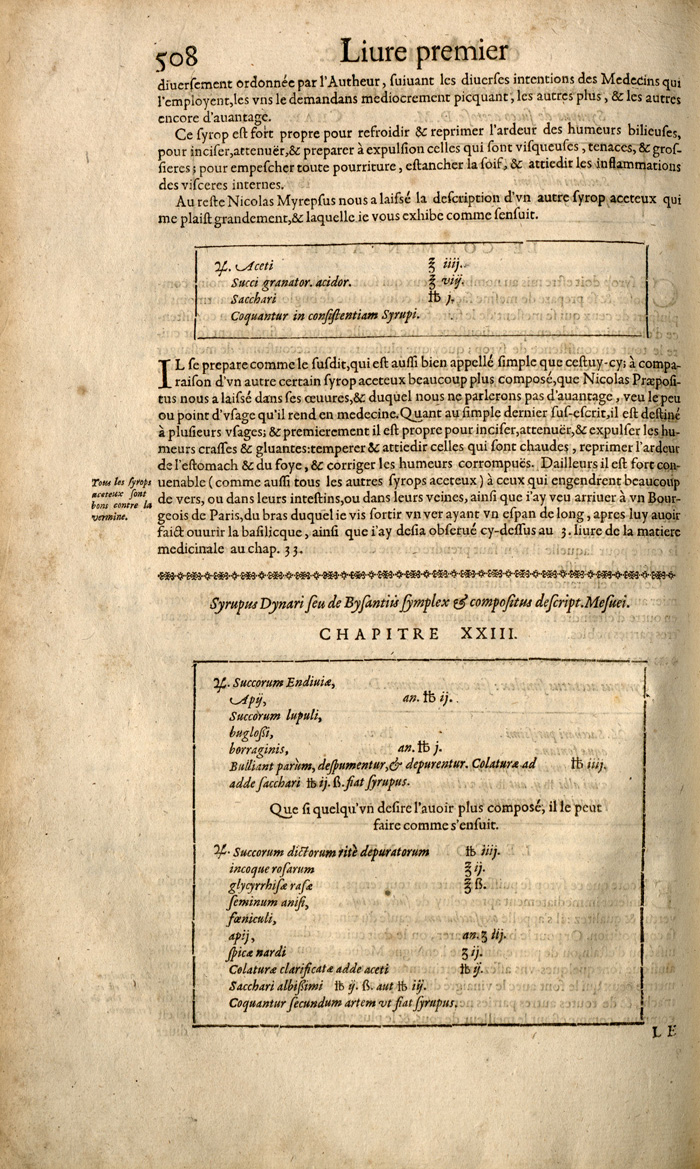 508 Liure premier
diuersement ordonnée par l'Autheur, suiuant les diuerses intentions des Medecins qui
l'employent, les vns le demandans mediocrement picquant, les autres plus, & les autres
encore d'auantage.
Ce syrop est fort propre pour refroidir & reprimer l'ardeur des humeurs bilieuses,
pour inciser, attenuër, & preparer à expulsion celles qui sont visqueuses, tenaces, & gros-
sieres; pour empescher toute pourriture, estancher la soif, & attiedir les inflammations
des visceres internes.
Au reste Nicolas Myrepsus nous a laissé la description d'vn autre syrop aceteux qui
me plaist grandement, & laquelle ie vous exhibe comme sensuit.
♃. Aceti ℥ iiij.
Succi granator. acidor. ℥ viij.
Sacchari ℔ j.
Coquantur in consistentiam Syrupi.
IL se prepare comme le susdit, qui est aussi bien appellé simple que cestuy-cy; à compa-
raison d'vn autre certain syrop aceteux beaucoup plus composé, que Nicolas Præposi-
tus nous a laissé dans ses œuures, & duquel nous ne parlerons pas d'auantage, veu le peu
ou point d'vsage qu'il rend en medecine. Quant au simple dernier sus-escrit, il est destiné
à plusieurs vsages; & premierement il est propre pour inciser, attenuër, & expulser les hu-
meurs crasses & gluantes: temperer & attiedir celles qui sont chaudes, reprimer l'ardeur
de l'estomach & du foye, & corriger les humeurs corrompuës. Dailleurs il est fort con-
uenable (comme aussi tous les autres syrops aceteux) à ceux qui engendrent beaucoup
de vers, ou dans leurs intestins, ou dans leurs veines, ainsi que i'ay veu arriuer à vn Bour-
geois de Paris, du bras duquel ie vis sortir vn ver ayant vn espan de long, apres luy auoir
faict ouurir la basilicque, ainsi que i'ay desia obserué cy-dessus au 3. liure de la matiere
medicinale au chap. 33.
Tous les syrops
aceteux sont
bons contre la
vermine.
Syrupus Dynari seu de Bysantiis symplex & compositus descript. Mesuei.
CHAPITRE XXIII.
♃. Succorum Endiuiæ,
Apij, an. ℔ ij.
Succorum lupuli,
buglossi,
borraginis, an. ℔ j.
Bulliant parùm, despumentur, & depurentur. Colaturæ ad ℔ iiij.
adde sacchari ℔ ij. ß. fiat syrupus.
Que si quelqu'vn desire l'auoir plus composé, il le peut
faire comme s'ensuit.
♃. Succorum dictorum ritè depuratorum ℔ iiij.
incoque rosarum ℥ ij.
glycyrrhisæ rasæ ℥ ß.
seminum anisi,
fœniculi,
apij, an. ʒ iij.
spicæ nardi ʒ ij.
Colaturæ clarificatæ adde aceti ℔ ij.
Sacchari albissimi ℔ ij. ß. aut ℔ iij.
Coquantur secundum artem vt fiat syrupus.
LE